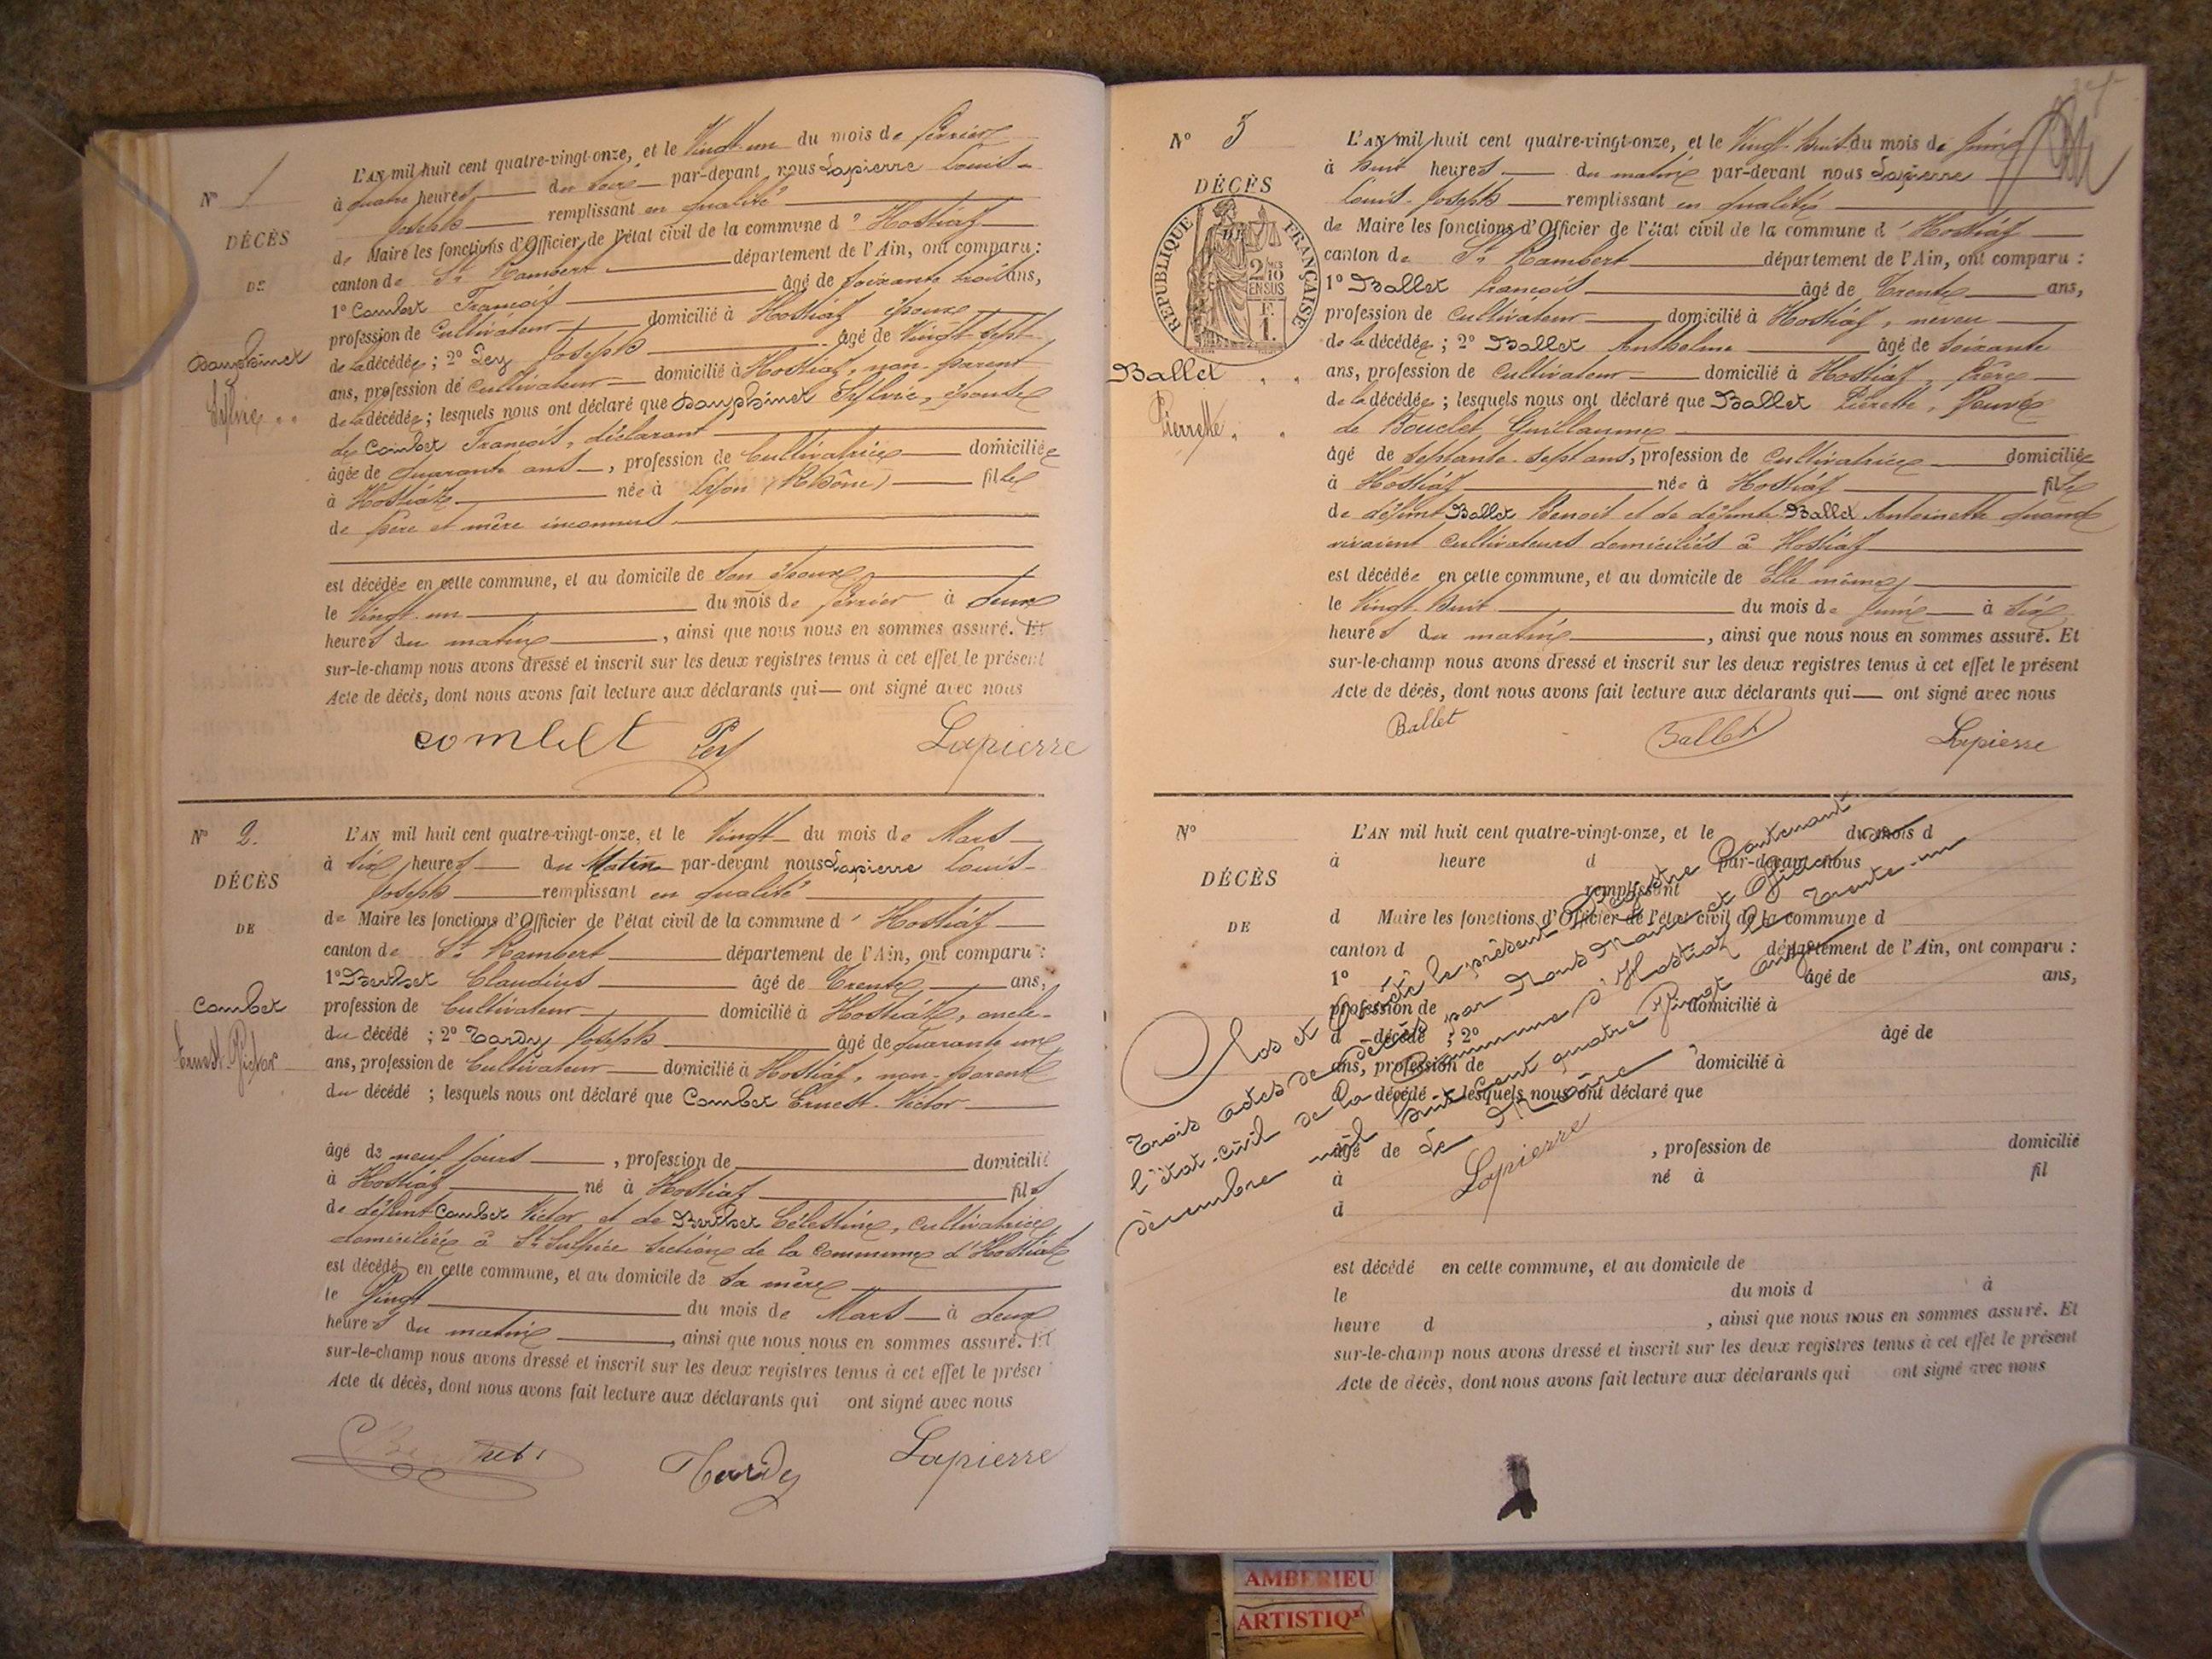 N° 1
DÉCÈS
DE
Dauphinet
Sylvie
L'AN mil huit cent quatre-vingt-onze, et le Vingt-un du mois de février
à quatre heures du soir par-devant nous Lapierre Louis-
Joseph remplissant en qualité
de Maire les fonctions d'Officier de l'état civil de la commune d'Hostiaz
canton de St Rambert département de l'Ain, ont comparu :
1° Combet François âgé de soixante trois ans,
profession de Cultivateur domicilié à Hostiaz époux
de la décédée ; 2° Pey Joseph âgé de Vingt-sept
ans, profession de Cultivateur domicilié à Hostiaz, non-parent
de la décédée ; lesquels nous ont déclaré que Dauphinet Sylvie, épouse
de Combet François, déclarant
âgée de quarante ans, profession de Cultivatrice domiciliée
à Hostiaz née à Lyon (Rhône) fille
de père et mère inconnus
est décédée en cette commune, et au domicile de son époux,
le Vingt-un du mois de février à deux
heures du matin, ainsi que nous nous en sommes assuré. Et
sur-le-champ nous avons dressé et inscrit sur les deux registres tenus à cet effet le présent
Acte de décès, dont nous avons fait lecture aux déclarants qui ont signé avec nous
combet Pey Lapierre
N° 2.
DÉCÈS
DE
Combet
Ernest-Victor
L'AN mil huit cent quatre-vingt-onze, et le Vingt du mois de Mars
à six heures du Matin par-devant nous Lapierre Louis-
Joseph remplissant en qualité
de Maire les fonctions d'Officier de l'état civil de la commune d'Hostiaz
canton de St Rambert département de l'Ain, ont comparu :
1° Berthet Claudius âgé de Trente ans,
profession de Cultivateur domicilié à Hostiaz, oncle
du décédé ; 2° Tardy Joseph âgé de quarante un
ans, profession de Cultivateur domicilié à Hostiaz, non-parent
du décédé ; lesquels nous ont déclaré que Combet Ernest-Victor
âgé de neuf jours, profession de domicilié
à Hostiaz né à Hostiaz fils
de défunt Combet Victor et de Berthet Célestine, cultivatrice,
domiciliée à St Sulpice section de la commune d'Hostiaz
est décédé en cette commune, et au domicile de sa mère
le Vingt du mois de Mars à deux
heures du matin, ainsi que nous nous en sommes assuré. Et
sur-le-champ nous avons dressé et inscrit sur les deux registres tenus à cet effet le présen
Acte de décès, dont nous avons fait lecture aux déclarants qui ont signé avec nous
Tardy Lapierre
N° 3
DÉCÈS
RÉPUBLIQUE FRANÇAISE
2/10 EN SUS
F. 1.
Ballet
Pierrette
L'AN mil huit cent quatre-vingt-onze, et le Vingt-huit du mois de Juin
à huit heures du matin par-devant nous Lapierre
Louis-Joseph remplissant en qualité
de Maire les fonctions d'Officier de l'état civil de la commune d'Hostiaz
canton de St Rambert département de l'Ain, ont comparu :
1° Ballet françois âgé de Trente ans,
profession de Cultivateur domicilié à Hostiaz, neveu
de la décédée ; 2° Ballet Anthelme âgé de soixante
ans, profession de Cultivateur domicilié à Hostiaz, frère
de la décédée ; lesquels nous ont déclaré que Ballet Pierette, Veuve
de Bouclet Guillaume
âgé de septante-sept ans, profession de Cultivatrice domiciliée
à Hostiaz née à Hostiaz fille
de défunt Ballet Benoit et de défunte Ballet Antoinette quand
vivaient cultivateurs domiciliés à Hostiaz
est décédée en cette commune, et au domicile de Elle même,
le Vingt-huit du mois de Juin à six
heures du matin, ainsi que nous nous en sommes assuré. Et
sur-le-champ nous avons dressé et inscrit sur les deux registres tenus à cet effet le présent
Acte de décès, dont nous avons fait lecture aux déclarants qui ont signé avec nous
Ballet Ballet Lapierre
N°
DÉCÈS
DE
L'AN mil huit cent quatre-vingt-onze, et le du mois d
à heure d par-devant nous
remplissant
d Maire les fonctions d'Officier de l'état civil de la commune d
canton d département de l'Ain, ont comparu :
1° âgé de ans,
profession de domicilié à
d décédé ; 2° âgé de
ans, profession de domicilié à
d décédé ; lesquels nous ont déclaré que
âgé de , profession de domicilié
à né à fil
d
est décédé en cette commune, et au domicile de
le du mois d à
heure d , ainsi que nous nous en sommes assuré. Et
sur-le-champ nous avons dressé et inscrit sur les deux registres tenus à cet effet le présent
Acte de décès, dont nous avons fait lecture aux déclarants qui ont signé avec nous
Clos et arrêté le présent Registre Contenant
Trois actes de décès par Nous Maire et Officier de
l'état-civil de la Commune d'Hostiaz le Trente-un
décembre mil huit cent quatre Vingt onze
Le Maire,
Lapierre
AMBERIEU
ARTISTIQ